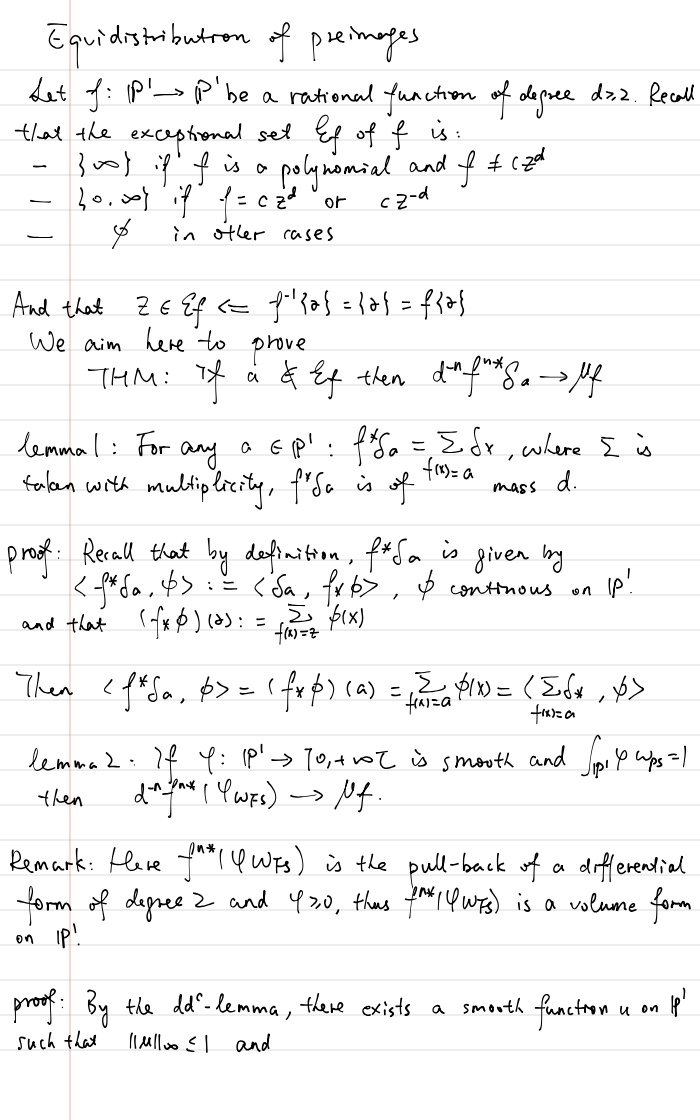 Equidistribution of preimages
Let f: ℙ¹ → ℙ¹ be a rational function of degree d≥2. Recall
that the exceptional set Ɛf of f is:
— {∞} if f is a polynomial and f ≠ cz^d
— {0,∞} if f = cz^d or cz^-d
— ∅ in other cases
And that z ∈ Ɛf <= f⁻¹{z} = {z} = f{z}
We aim here to prove
THM: If a ∉ Ɛf then d^-n f^n* δa → μf
lemma 1: For any a ∈ ℙ¹: f*δa = Σ_{f(x)=a} δx, where Σ is
taken with multiplicity, f*δa is of mass d.
proof: Recall that by definition, f*δa is given by
<f*δa, ϕ> := <δa, f*ϕ>, ϕ continous on ℙ¹.
and that (f*ϕ)(z) := Σ_{f(x)=z} ϕ(x)
Then <f*δa, ϕ> = (f*ϕ)(a) = Σ_{f(x)=a} ϕ(x) = <Σ_{f(x)=a} δx, ϕ>
lemma 2: If φ: ℙ¹ → ]0,+∞[ is smooth and ∫_{ℙ¹} φ ωFS = 1
then d^-n f^n*(φωFS) → μf.
Remark: Here f^n*(φωFS) is the pull-back of a differential
form of degree 2 and φ≥0, thus f^n*(φωFS) is a volume form
on ℙ¹.
proof: By the dd^c-lemma, there exists a smooth function u on ℙ¹
such that ||u||∞ ≤ 1 and